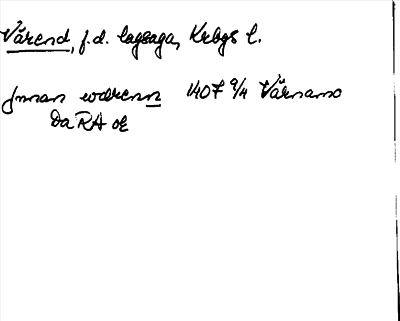 Värend, f.d. lagsaga, Krbgs l.
Jnnan wærenn 1407 9/4 Värnamo
Da RA or